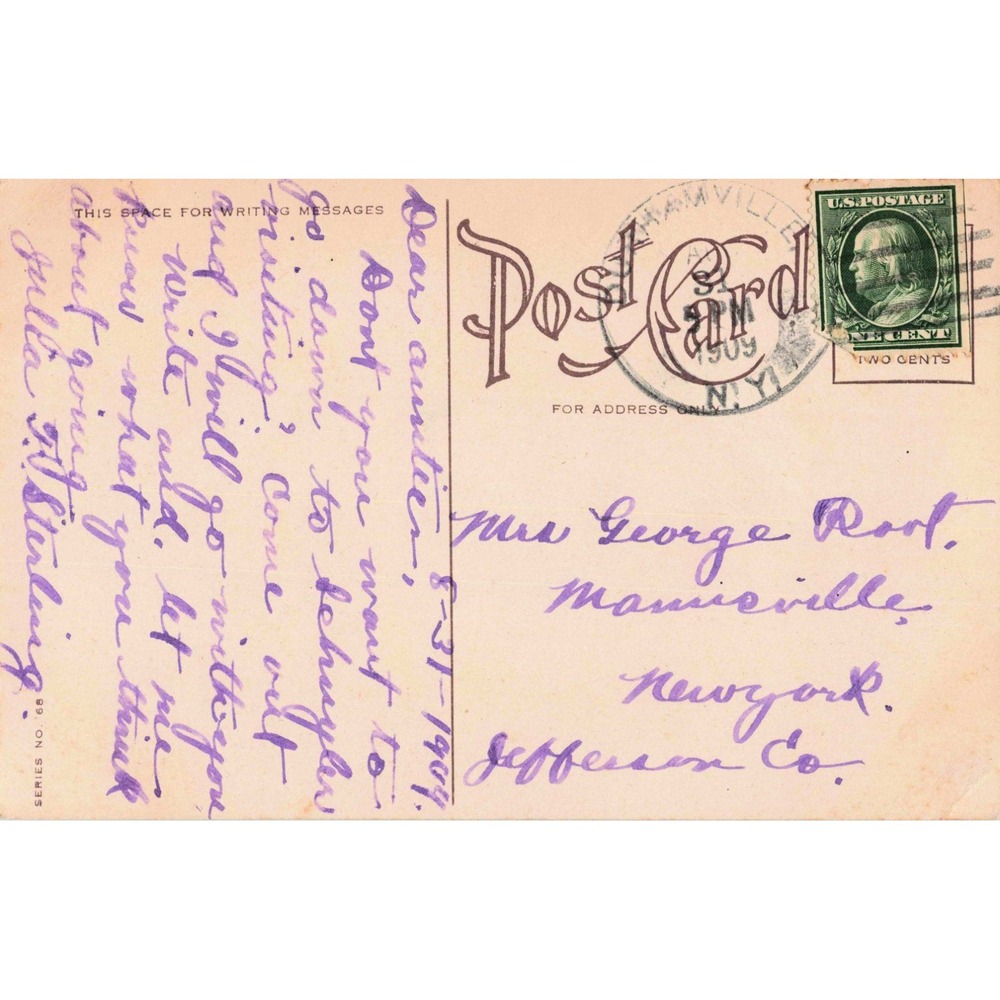 THIS SPACE FOR WRITING MESSAGES
8-31-1909.
Dear auntie,
Dont you want to
go down to Schuyler
visiting, Come out
and I will go with you
write and let me
know what you think
about going.
Julla F. Sterling.
SERIES NO. 68
Post Card
FOR ADDRESS ONLY
HAMVILLE
31
PM
1909
N.Y.
U.S. POSTAGE
ONE CENT
TWO CENTS
Mrs George Root.
Mannsville,
New york.
Jefferson Co.